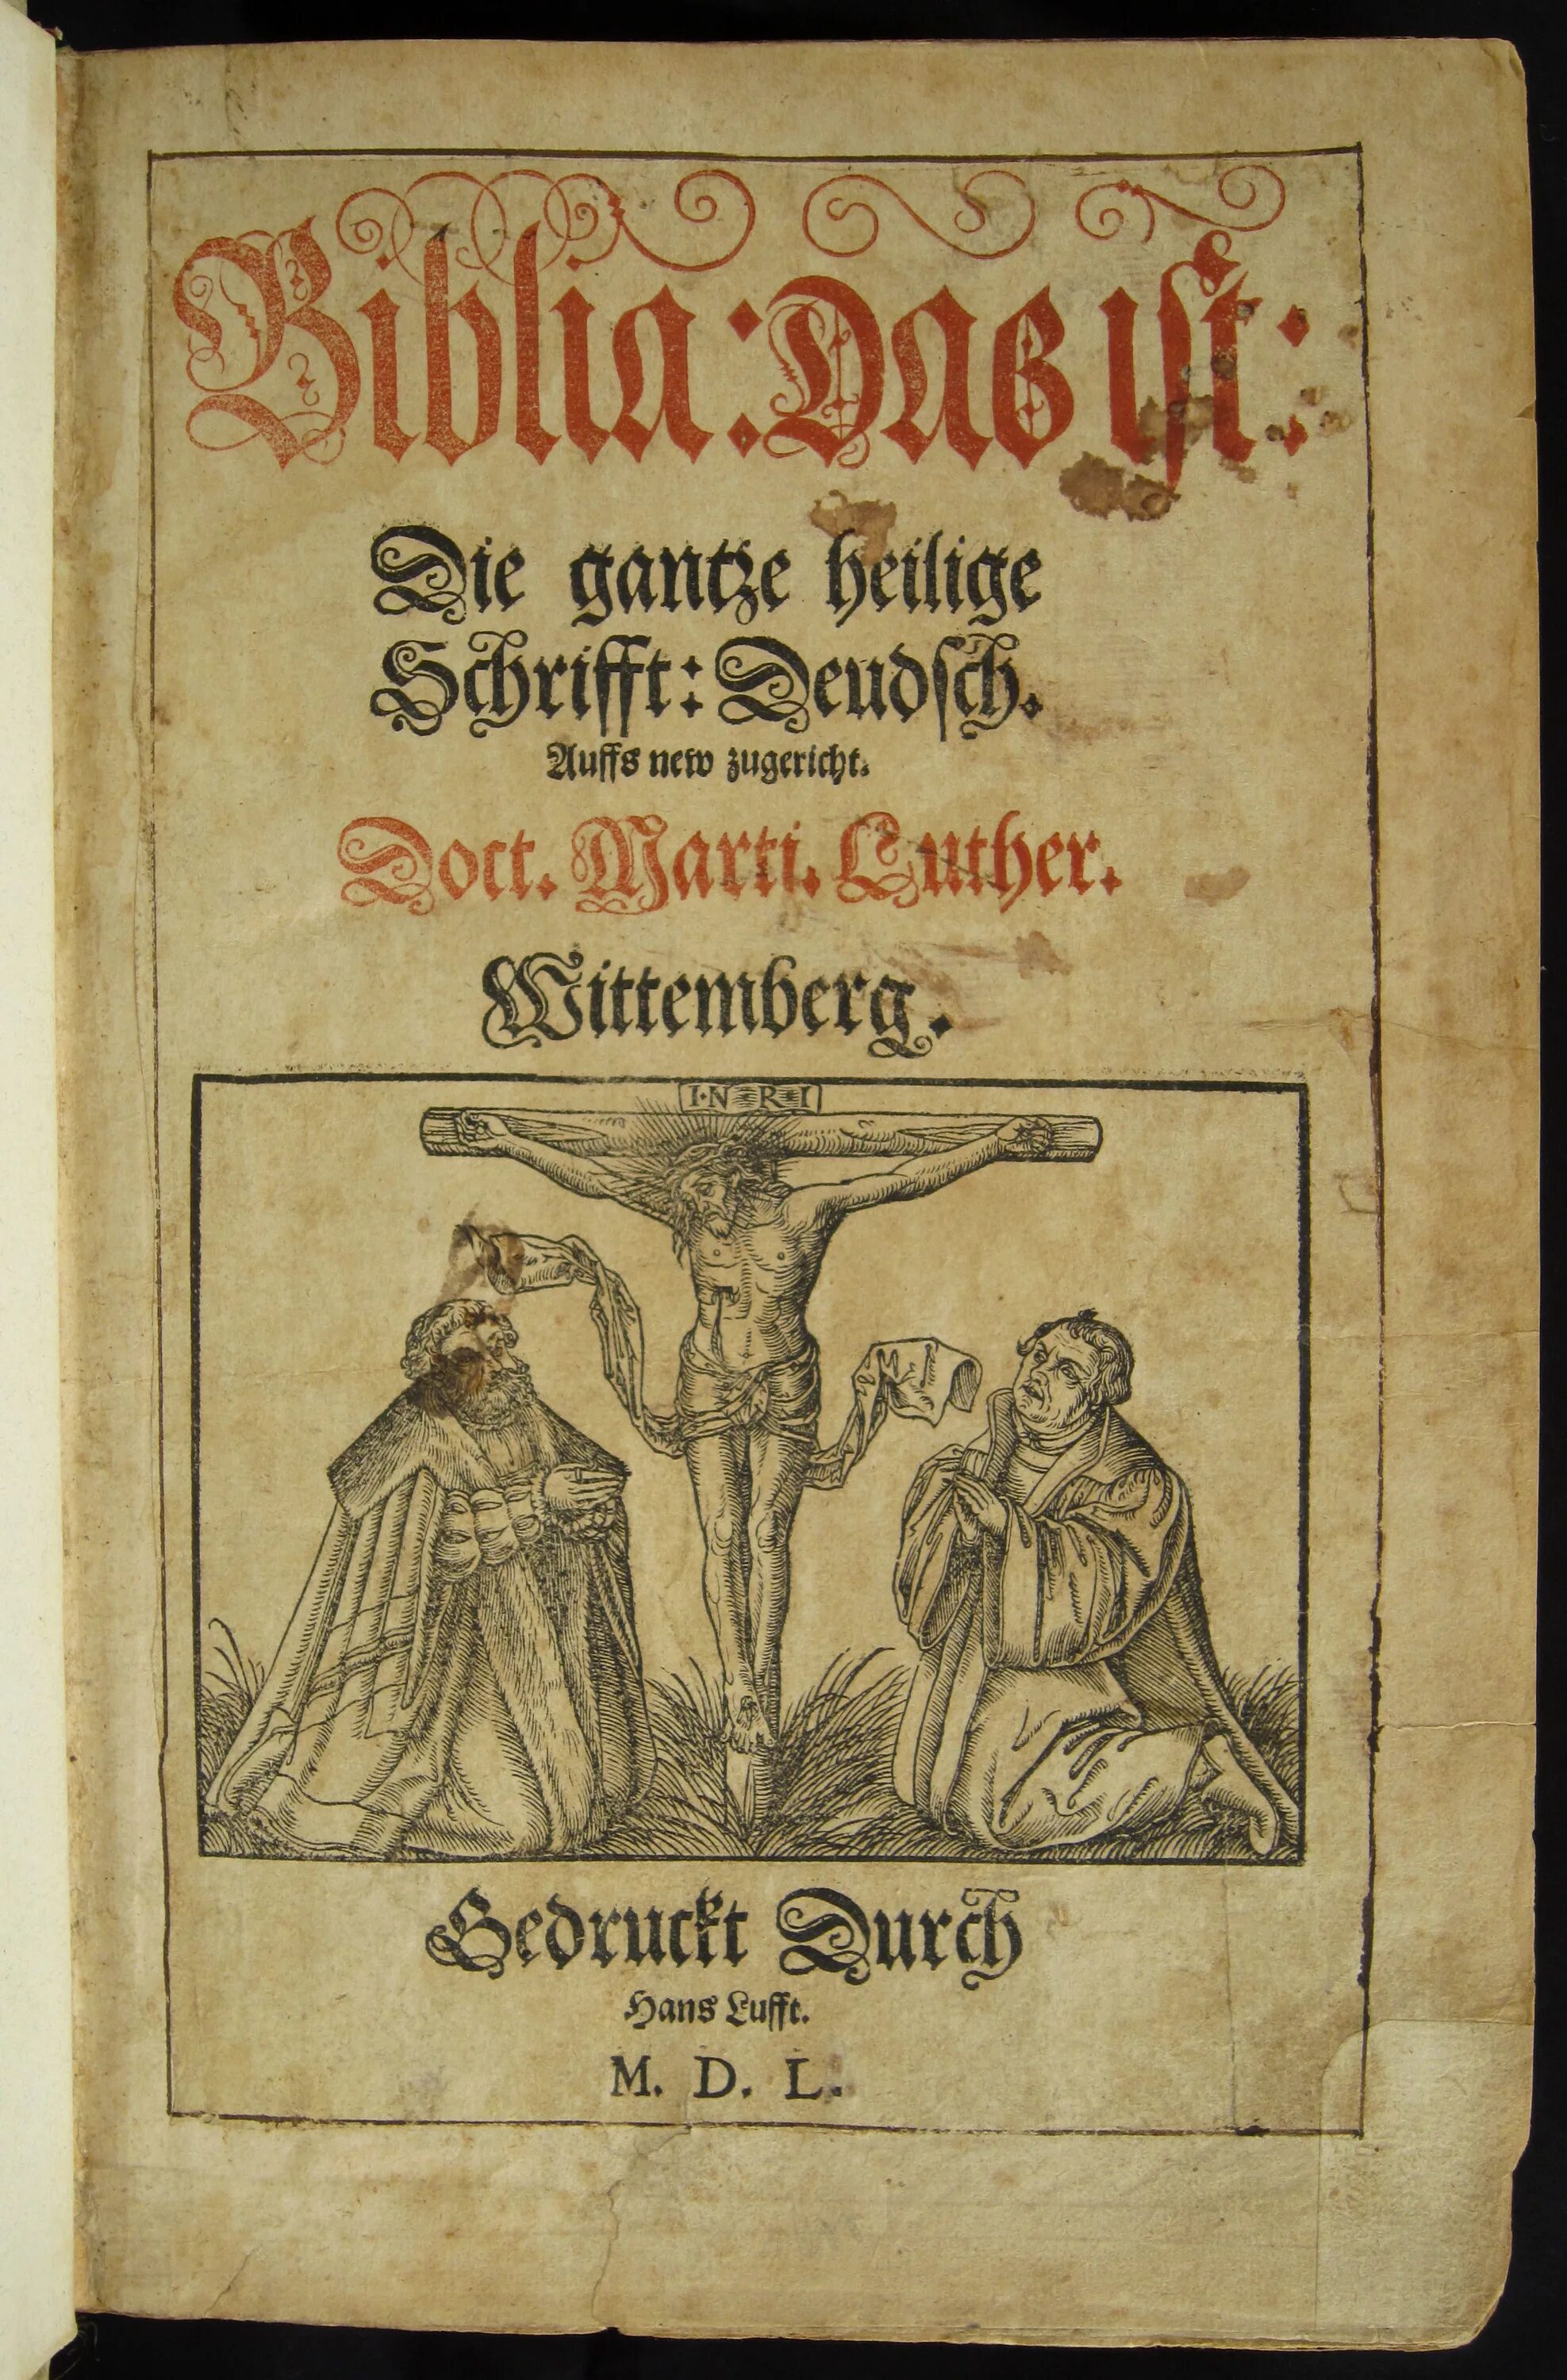 Biblia: Das ist:
Die gantze heilige
Schrifft: Deudsch.
Auffs new zugericht.
Doct. Marti. Luther.
Wittemberg.
I·N R I
Gedruckt Durch
Hans Lufft.
M. D. L.